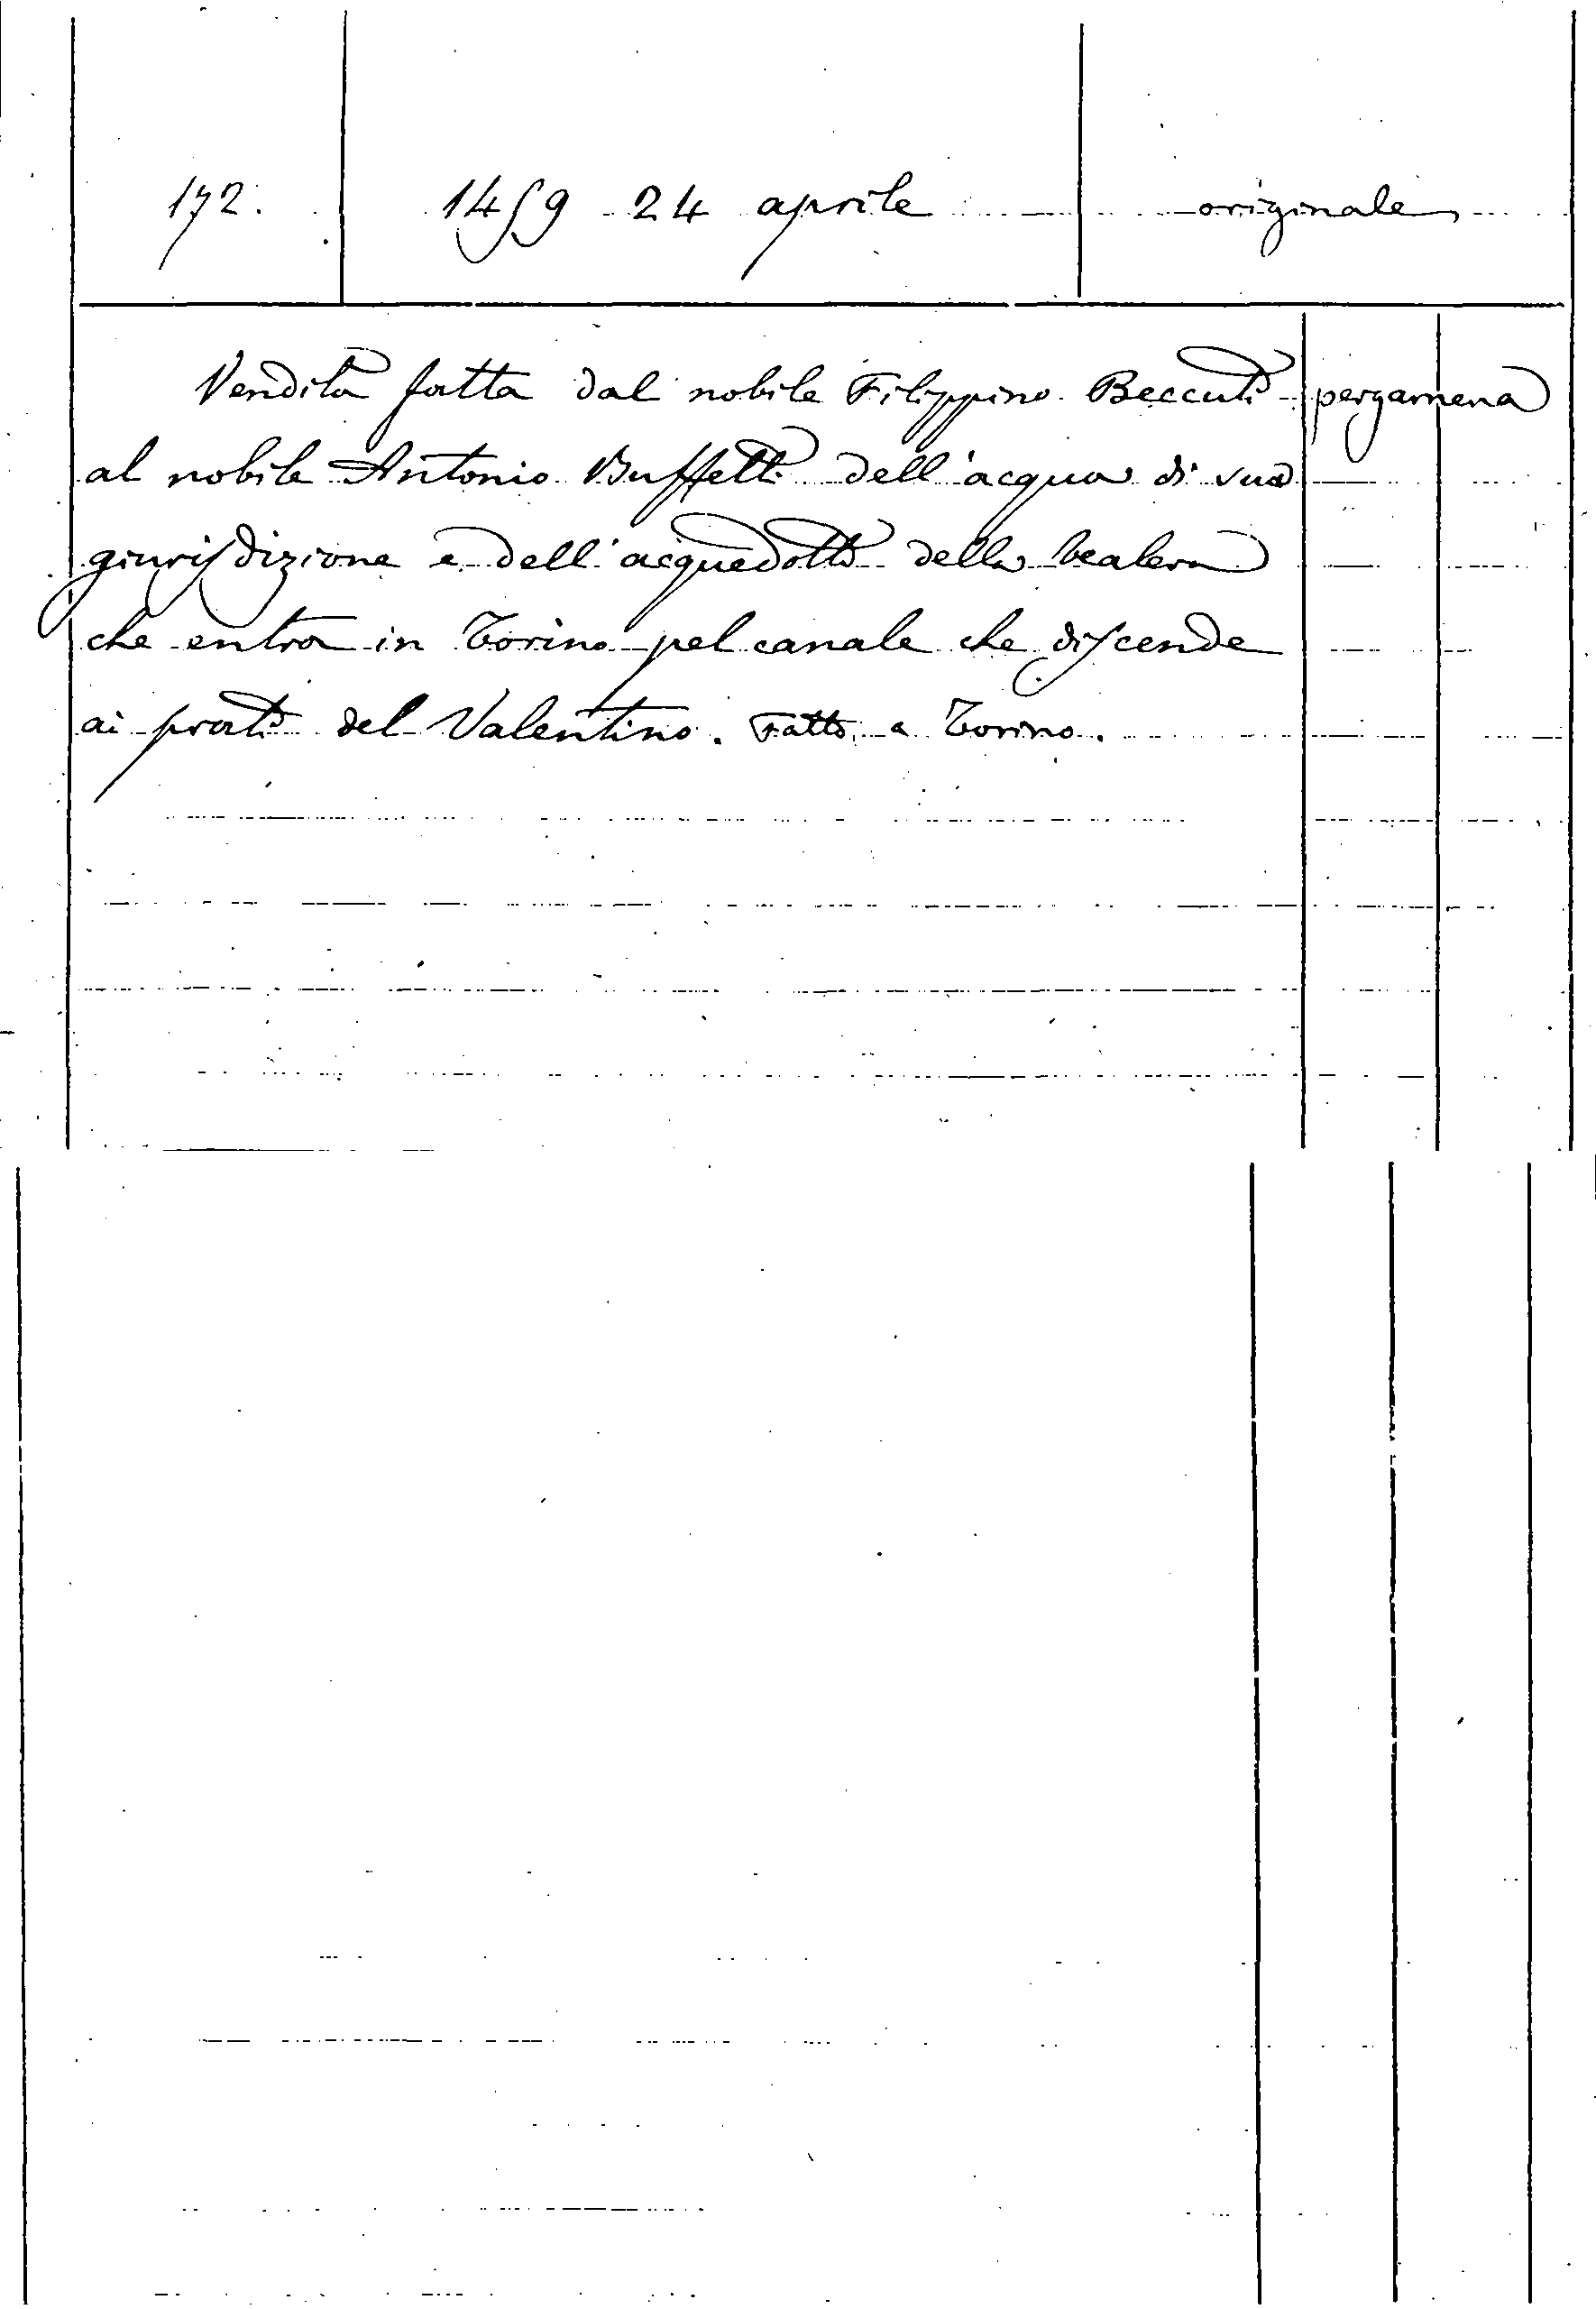 172. 1459 24 aprile originale
Vendita fatta dal nobile Filippino Beccuti pergamena
al nobile Antonio Buffetti dell'acqua di sua
giurisdizione e dell'acquedotto della bealera
che entra in Torino pel canale che discende
ai prati del Valentino. Fatto a Torino.